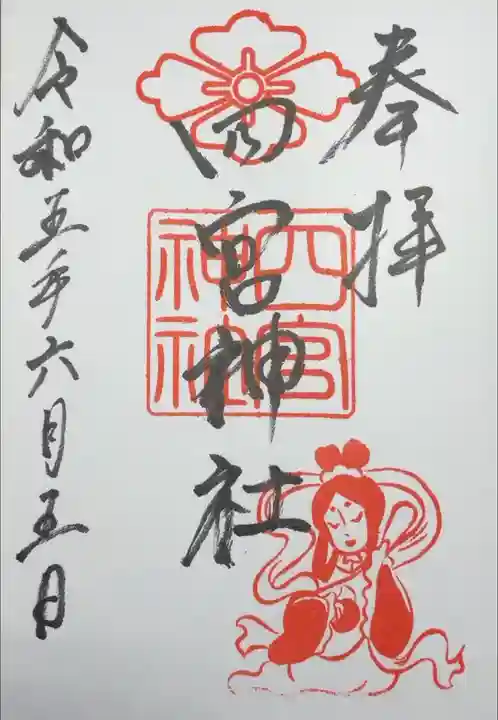 奉拝
四宮神社
四宮
神社
令和五年六月五日